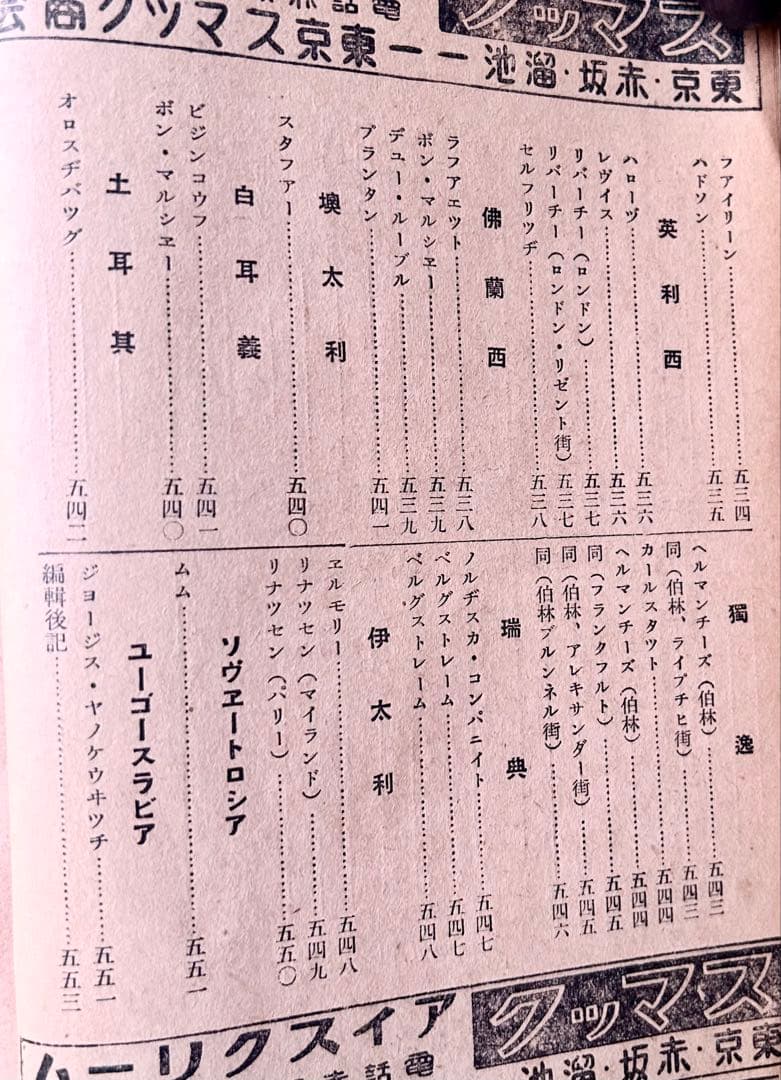 スマック
電話赤
東京・赤坂・溜池
東京スマック商会
フアイリーン……五三四
ハドソン……五三五
英利西
ハローヴ……五三六
レヴイス……五三六
リバーチー（ロンドン）……五三七
リバーチー（ロンドン・リゼント街）……五三七
セルフリツヂ……五三八
佛蘭西
ラフアエツト……五三八
ボン・マルシエー……五三九
デユー・ルーブル……五三九
プランタン……五四一
墺太利
スタフアー……五四〇
白耳義
ビジンコウフ……五四一
ボン・マルシヱー……五四〇
土耳其
オロスヂバツグ……五四二
獨逸
ヘルマンチーズ（伯林）……五四三
同（伯林、ライプチヒ街）……五四三
カールスタツト……五四四
ヘルマンチーズ（伯林）……五四四
同（フランクフルト）……五四五
同（伯林、アレキサンダー街）……五四五
同（伯林ブルンネル街）……五四六
瑞典
ノルヂスカ・コンパニイト……五四七
ベルグストレーム……五四七
ベルグストレーム……五四八
伊太利
ヱルモリー……五四八
リナツセン（マイランド）……五四九
リナツセン（バリー）……五五〇
ソヴヱートロシア
ムム……五五一
ユーゴースラビア
ジヨージス・ヤノケウヰツチ……五五一
編輯後記……五五三
スマック
東京・赤坂・溜池
アイスクリーム
電話赤